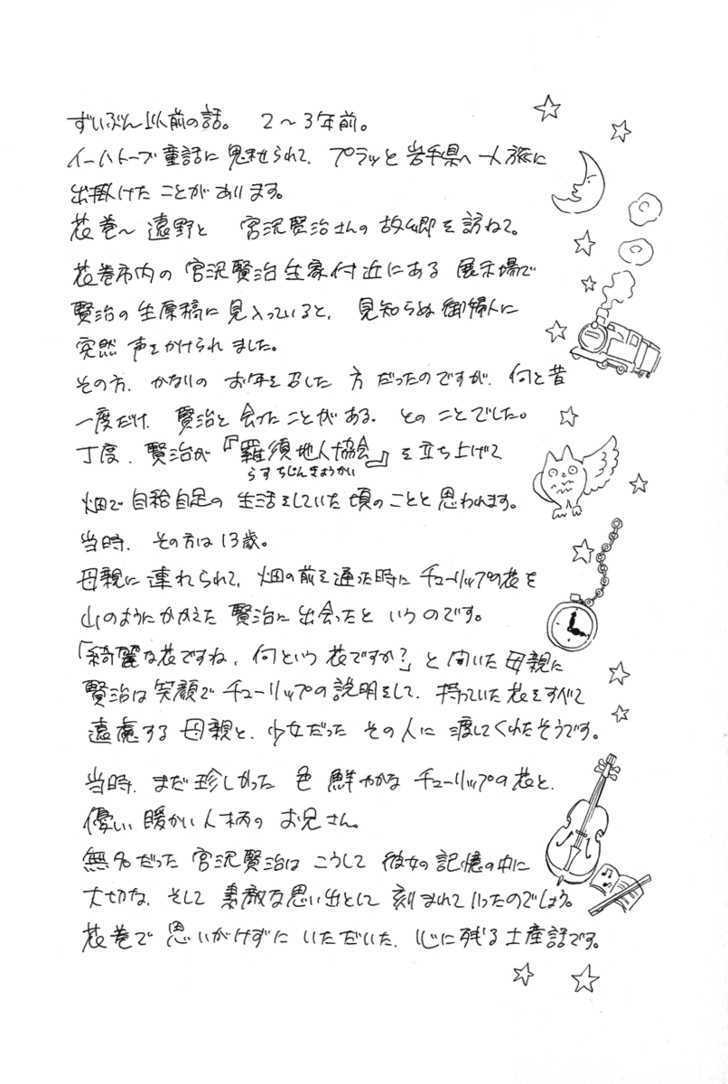 ずいぶん以前の話。 2〜3年前。
イーハトーブ童話に魅せられて、プラッと岩手県へ一人旅に
出掛けたことがあります。
花巻〜遠野と 宮沢賢治さんの故郷を訪ねて。
花巻市内の宮沢賢治生家付近にある 展示場で
賢治の生原稿に見入っていると、見知らぬ御婦人に
突然声をかけられました。
その方、かなりの お年を召した 方だったのですが、何と昔
一度だけ、賢治と会ったことがある、とのことでした。
丁度、賢治が『羅須地人協会』を立ち上げて
らすちじんきょうかい
畑で自給自足の 生活をしていた頃のことと思われます。
当時、その方は13歳。
母親に連れられて、畑の前を通った時に チューリップの花を
山のようにかかえた 賢治に出会ったと いうのです。
「綺麗な花ですね、何という花ですか?」と聞いた母親に
賢治は笑顔でチューリップの説明をして、持っていた花をすべて
遠慮する母親と、少女だった その人に渡してくれたそうです。
当時、まだ珍しかった 色鮮やかな チューリップの花と、
優しい暖かい人柄の お兄さん。
無名だった 宮沢賢治は こうして 彼女の記憶の中に
大切な、そして 素敵な思い出として 刻まれていったのでしょう。
花巻で 思いがけずに いただいた、心に残る土産話です。